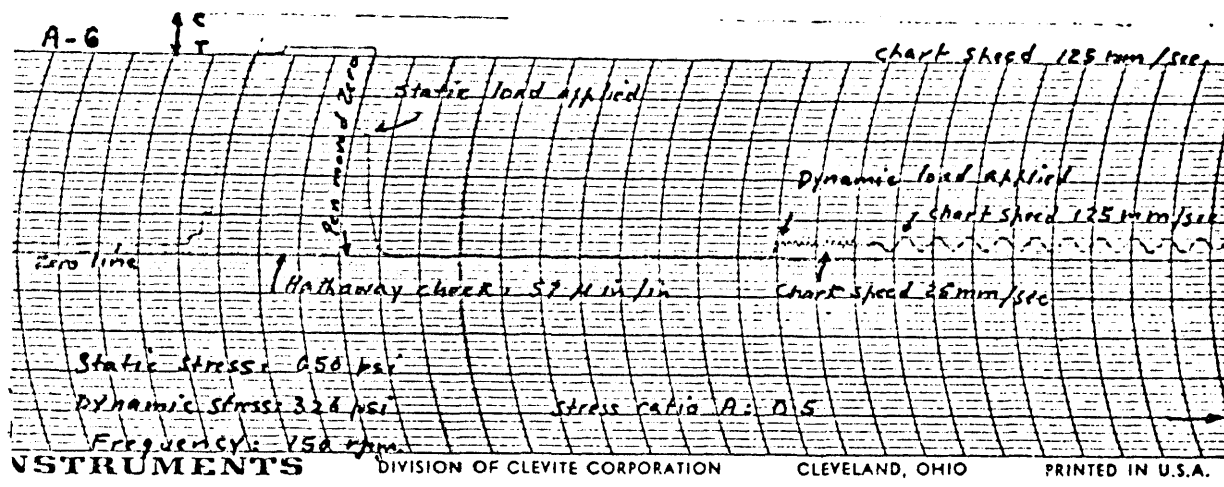 C
A-6
T
chart speed 125 mm/sec.
Pen moved zero
Static load applied
Dynamic load applied
chart speed 125 mm/sec
zero line
Hathaway check: 59 µ in/in
Chart speed 25 mm/sec
Static stress: 650 psi
Dynamic stress: 326 psi
Stress ratio A: 0.5
Frequency: 150 rpm.
NSTRUMENTS
DIVISION OF CLEVITE CORPORATION
CLEVELAND, OHIO
PRINTED IN U.S.A.